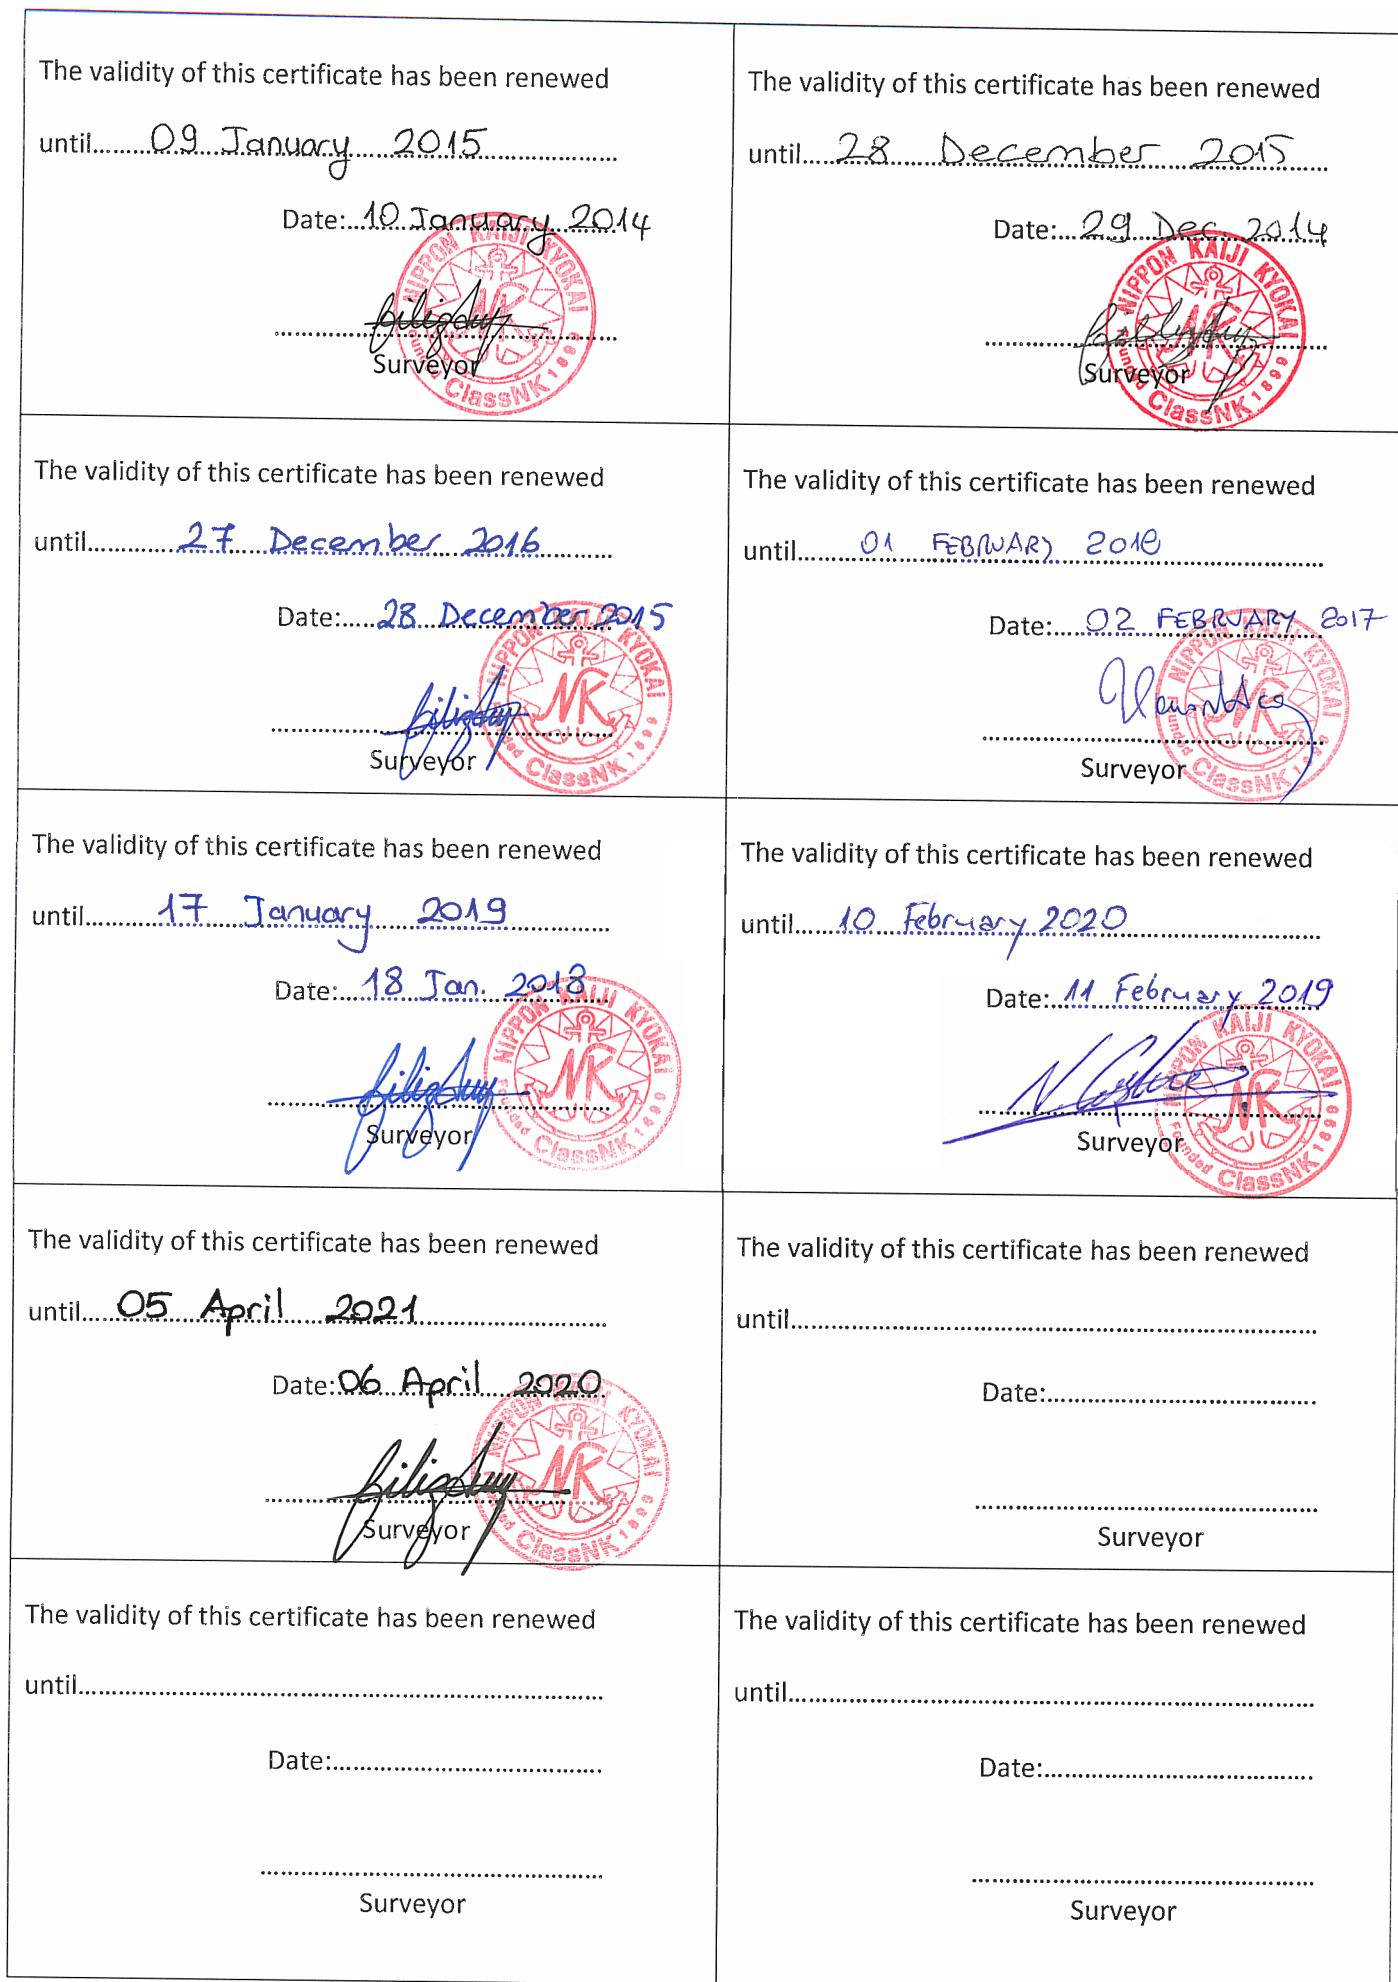 The validity of this certificate has been renewed
until......09 January 2015..................
Date:...10 January 2014
NIPPON KAIJI KYOKAI
Founded 1899
ClassNK
Surveyor
The validity of this certificate has been renewed
until.....28 December 2015......
Date:...29 Dec. 2014
NIPPON KAIJI KYOKAI
Founded 1899
ClassNK
Surveyor
The validity of this certificate has been renewed
until.............27 December 2016..........
Date:.....28 December 2015
NIPPON KAIJI KYOKAI
Founded 1899
ClassNK
Surveyor
The validity of this certificate has been renewed
until.........01 FEBRUARY 2018......................
Date:.....02 FEBRUARY 2017
NIPPON KAIJI KYOKAI
Founded 1899
ClassNK
Surveyor
The validity of this certificate has been renewed
until.........17 January 2019...............
Date:...18 Jan. 2018
NIPPON KAIJI KYOKAI
Founded 1899
ClassNK
Surveyor
The validity of this certificate has been renewed
until.....10 February 2020.............................
Date:.11 February 2019
NIPPON KAIJI KYOKAI
Founded 1899
ClassNK
Surveyor
The validity of this certificate has been renewed
until.....05 April 2021............................
Date:06 April 2020
NIPPON KAIJI KYOKAI
Founded 1899
ClassNK
Surveyor
The validity of this certificate has been renewed
until................................................................................
Date:.........................................
Surveyor
The validity of this certificate has been renewed
until................................................................................
Date:.........................................
Surveyor
The validity of this certificate has been renewed
until................................................................................
Date:.........................................
Surveyor